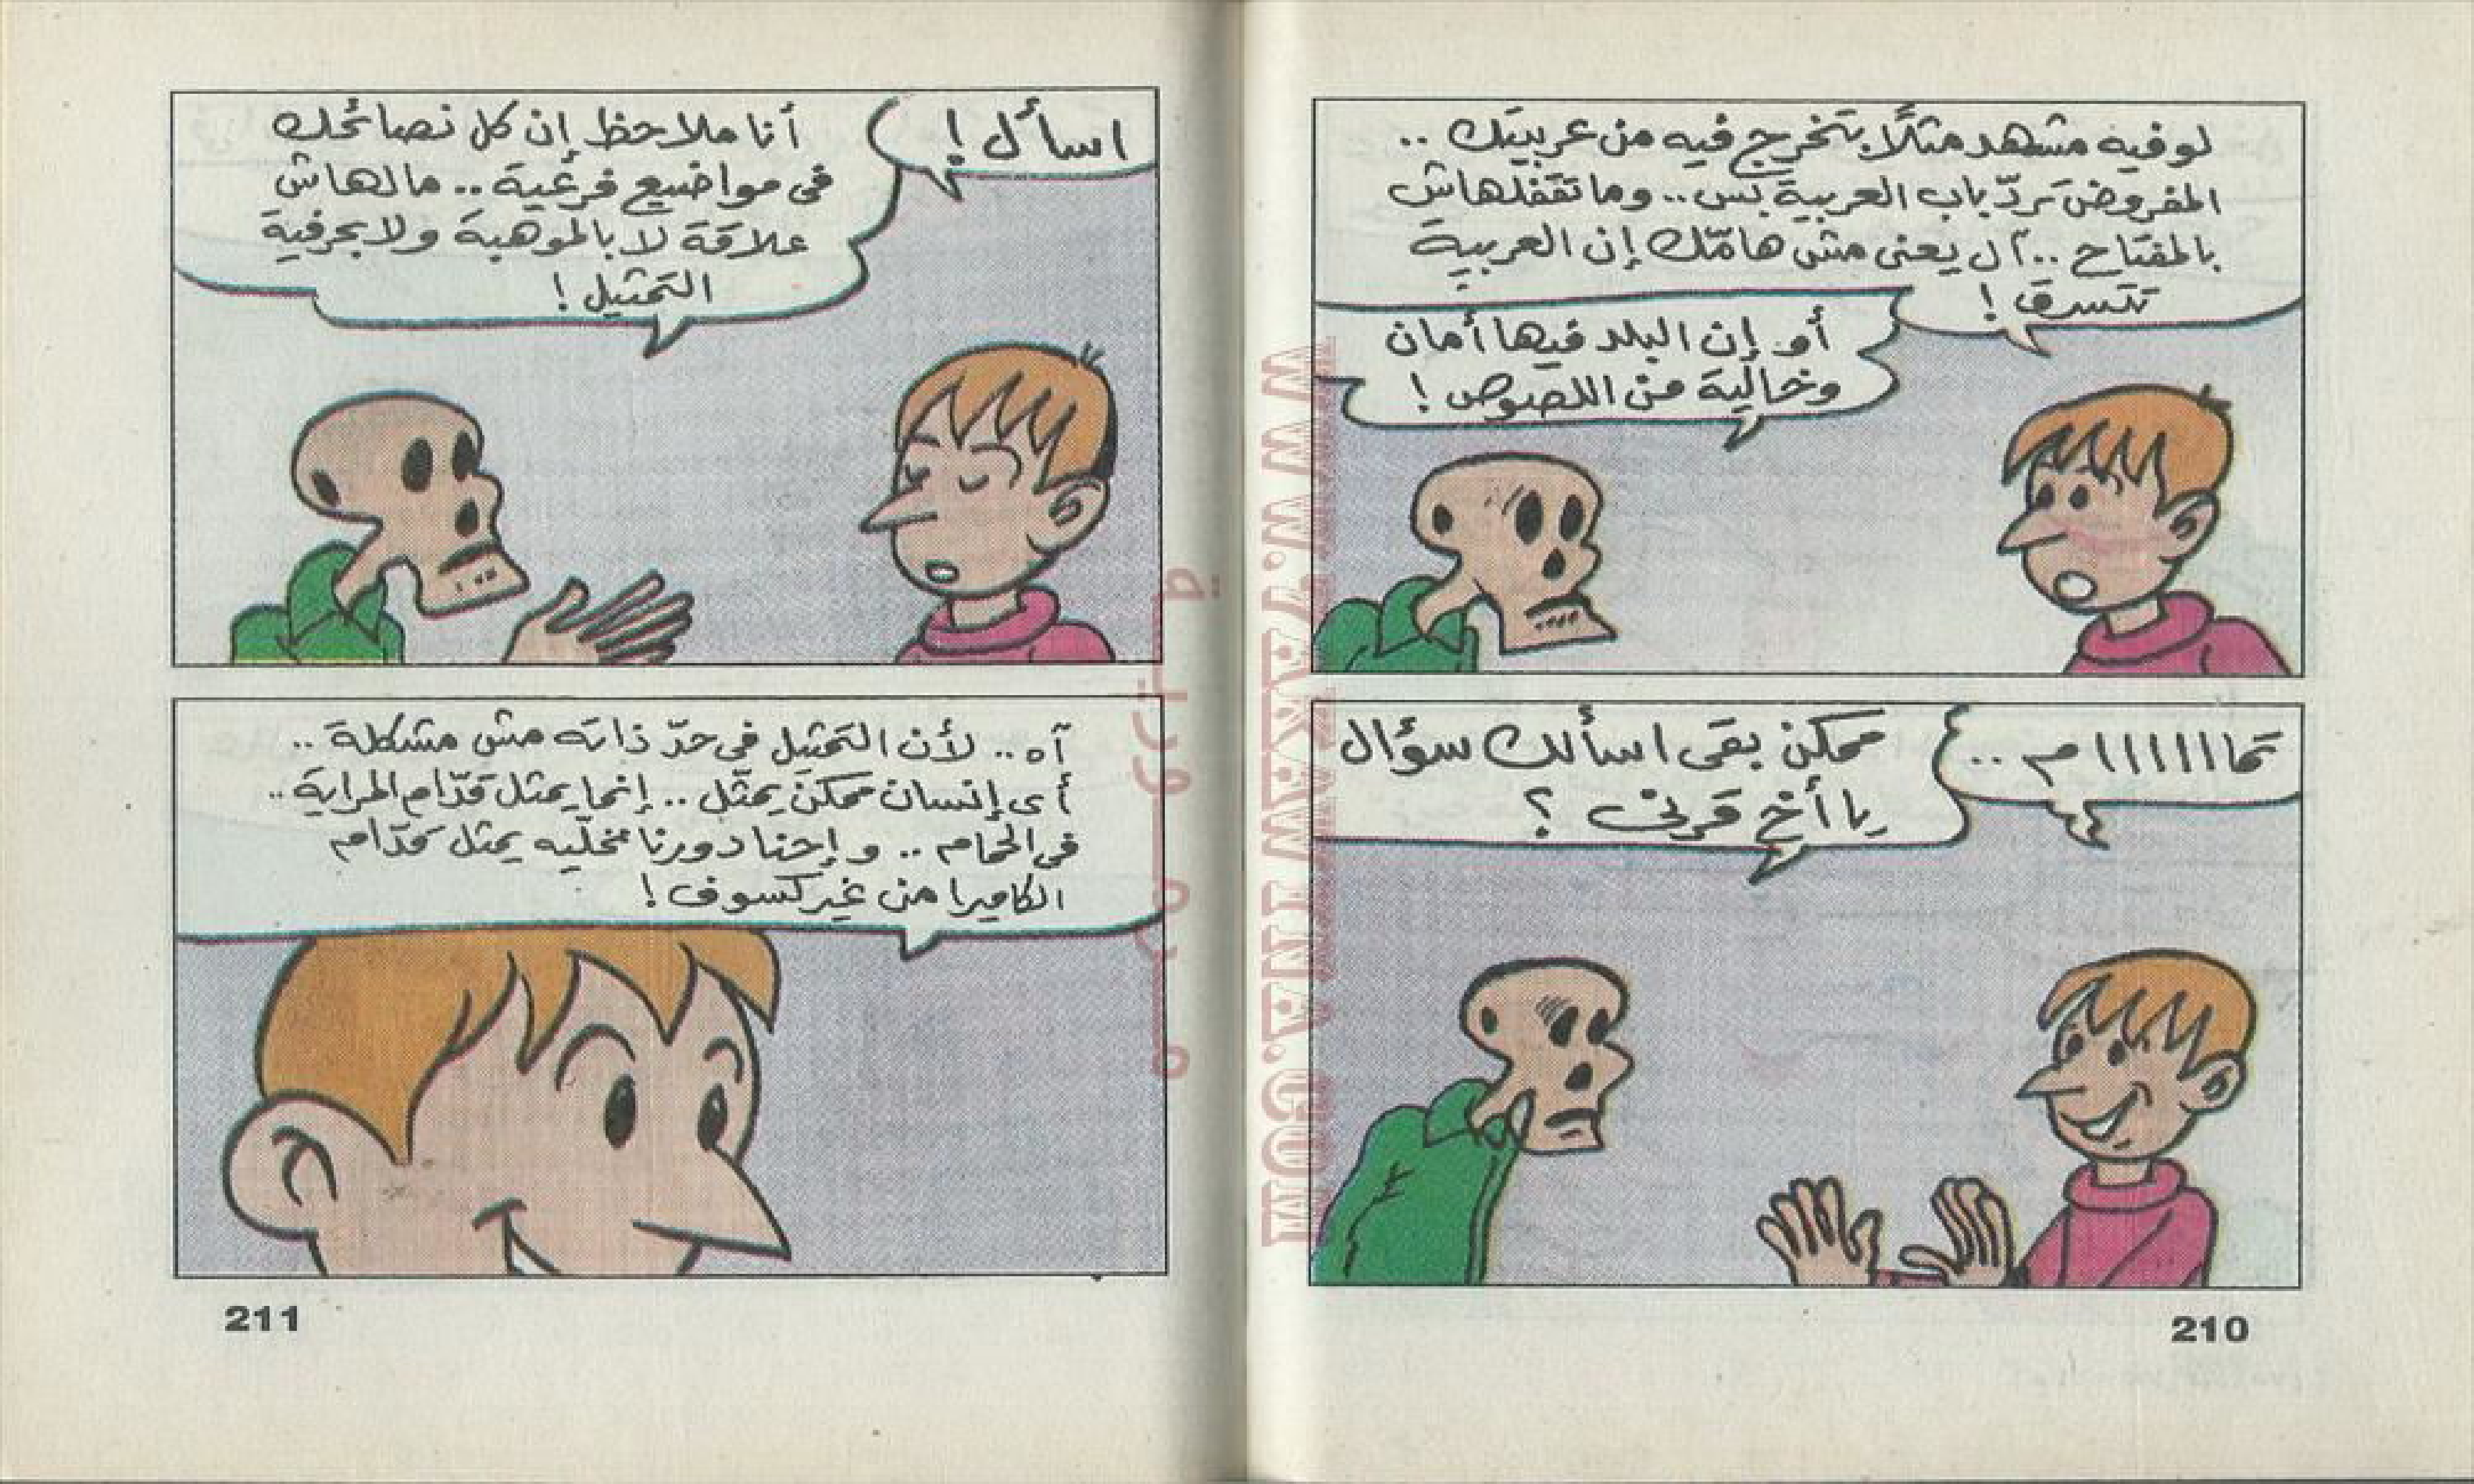 لو فيه مشهد مثلًا بتخرج فيه من عربيتك ..
المفروض تردّ باب العربية بس .. وما تقفلهاش
بالمفتاح .. آل يعنى مش هامّك إن العربية
تتسرق !
أو إن البلد فيها أمان
وخالية من اللصوص !
تمااااااام ..
ممكن بقى اسألك سؤال
يا أخ قرنى ؟
210
اسأل !
أنا ملاحظ إن كل نصائحك
فى مواضيع فرعية .. مالهاش
علاقة لا بالموهبة ولا بحرفية
التمثيل !
آه .. لأن التمثيل فى حدّ ذاته مش مشكلة ..
أى إنسان ممكن يمثّل .. إنما يمثل قدّام المراية ..
فى الحمام .. و إحنا دورنا نخلّيه يمثل قدّام
الكاميرا من غير كسوف !
211
WWW.VAXAWINEM.COM